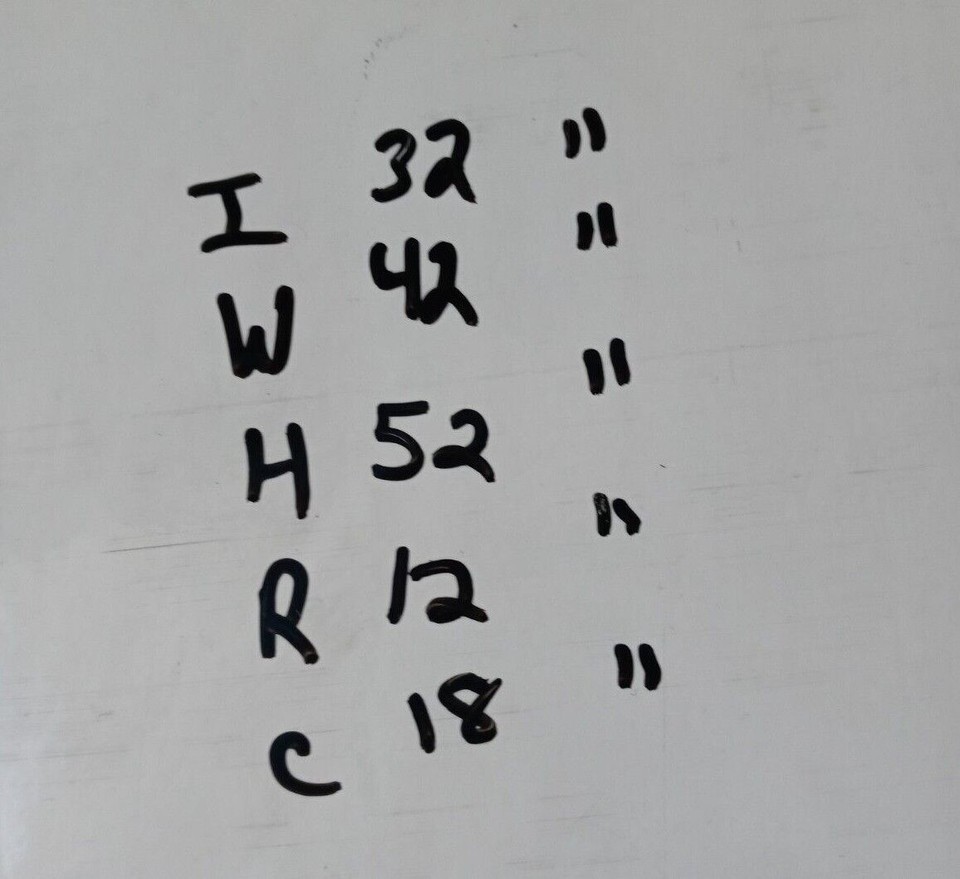 I 32 "
W 42 "
H 52 "
R 12 "
C 18 "